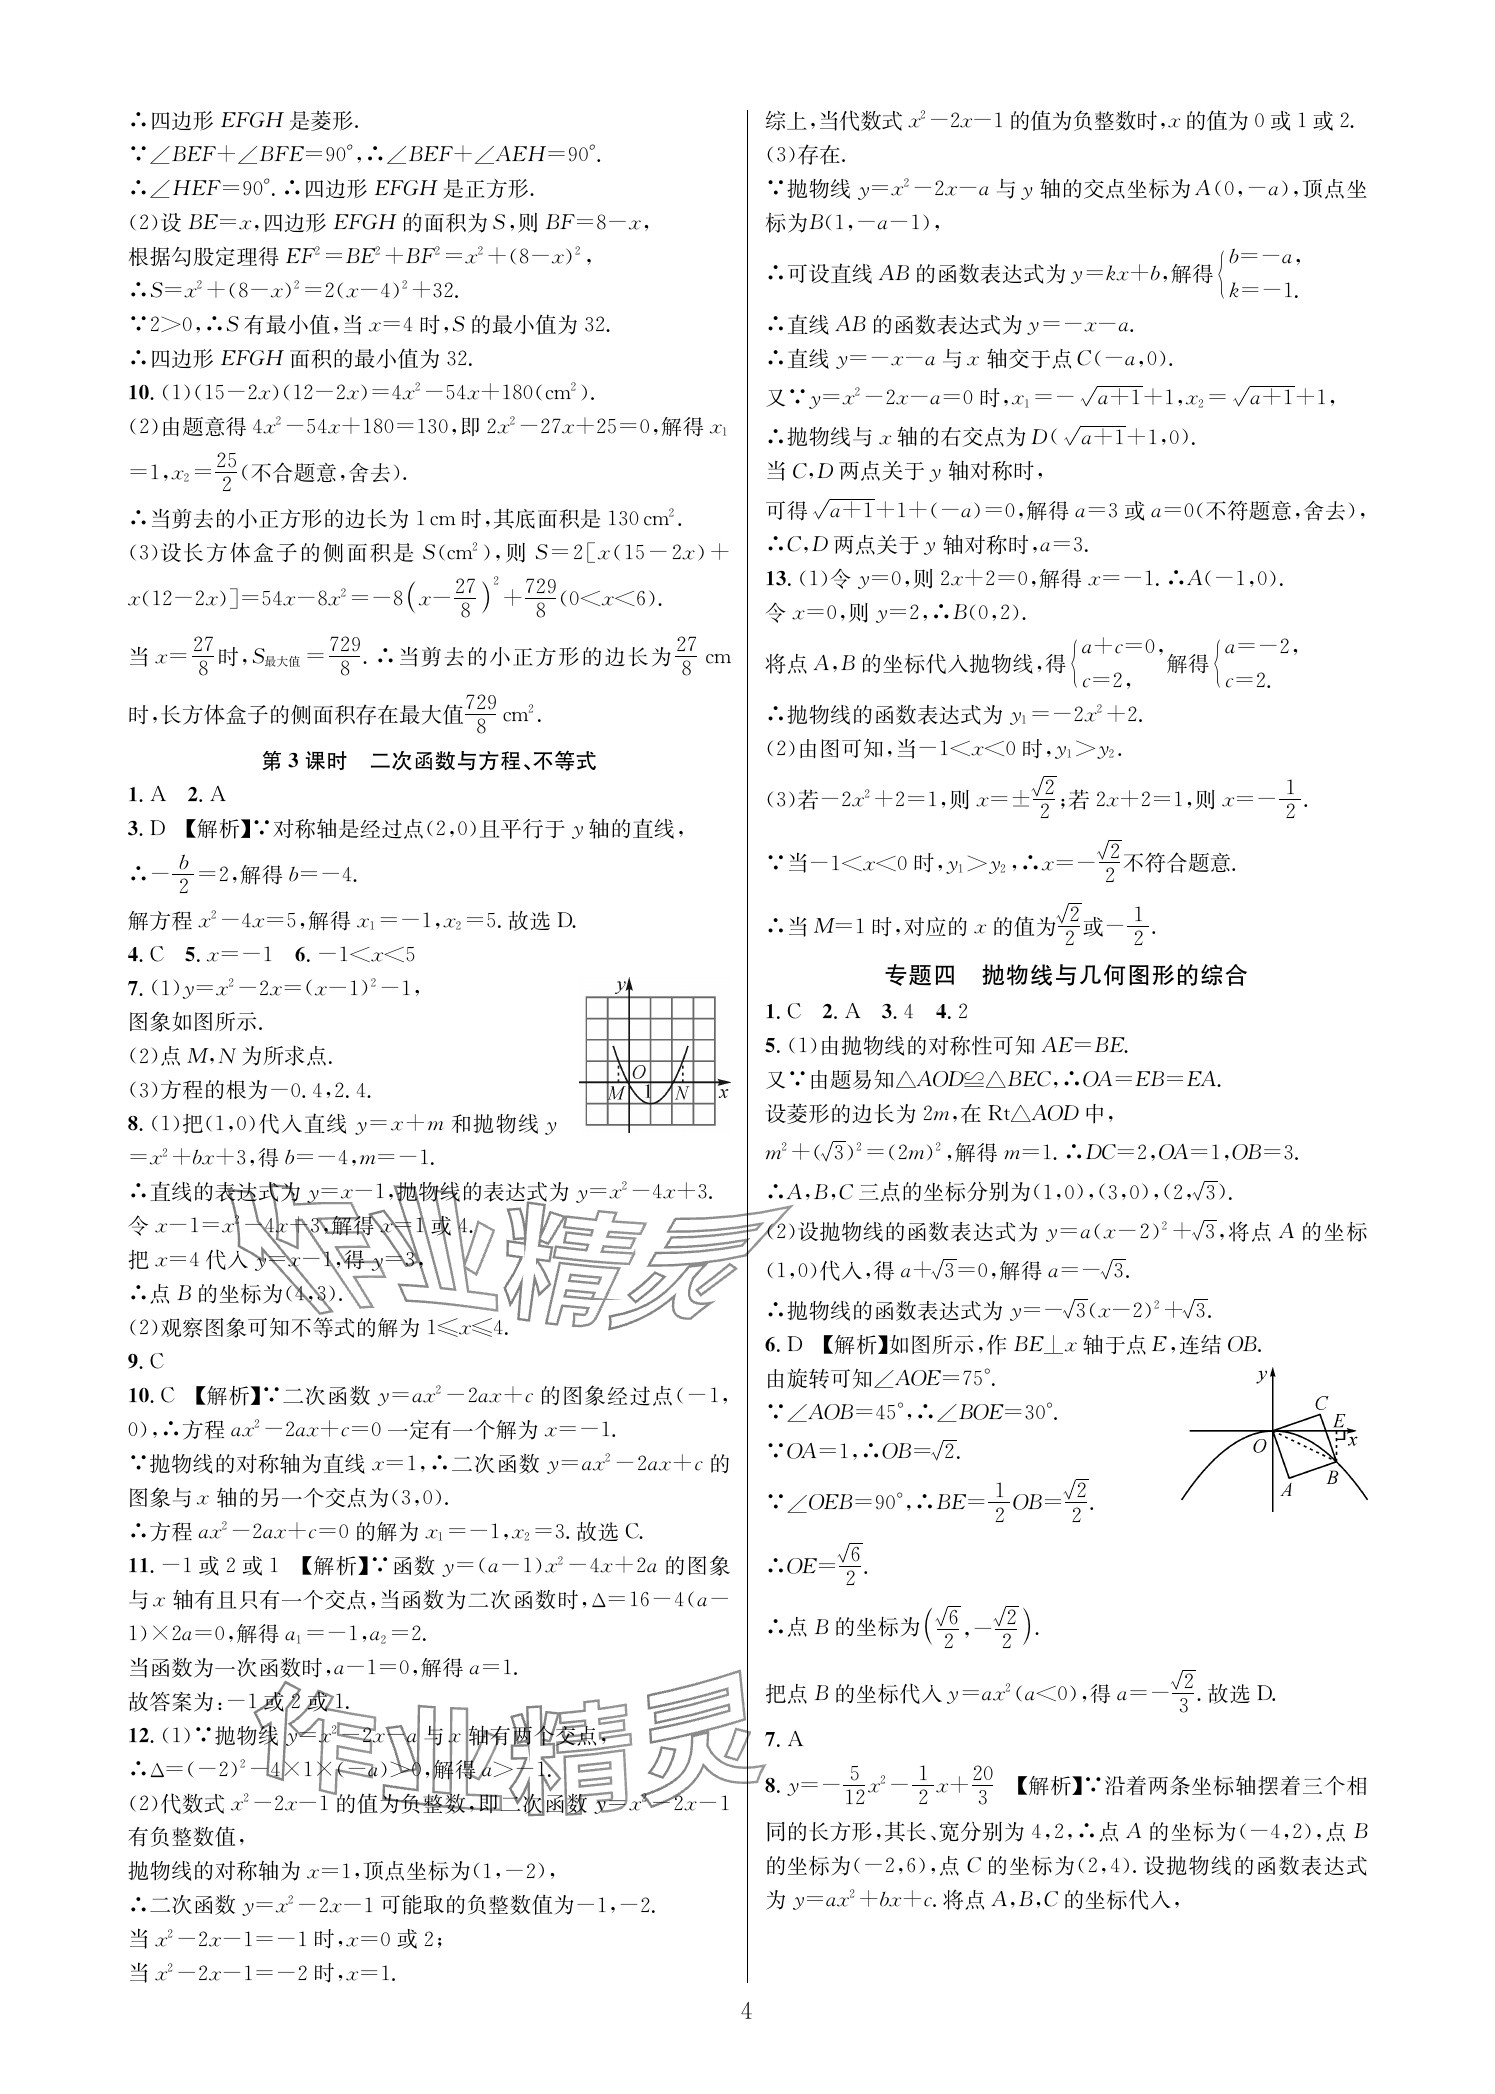 ∴四边形 EFGH 是菱形.
∵∠BEF+∠BFE=90°,∴∠BEF+∠AEH=90°.
∴∠HEF=90°.∴四边形 EFGH 是正方形.
(2)设 BE=x,四边形 EFGH 的面积为 S,则 BF=8-x,
根据勾股定理得 EF²=BE²+BF²=x²+(8-x)²,
∴S=x²+(8-x)²=2(x-4)²+32.
∵2>0,∴S 有最小值,当 x=4 时,S 的最小值为 32.
∴四边形 EFGH 面积的最小值为 32.
10. (1)(15-2x)(12-2x)=4x²-54x+180(cm²).
(2)由题意得 4x²-54x+180=130,即 2x²-27x+25=0,解得 x₁
=1,x₂=25/2(不合题意,舍去).
∴当剪去的小正方形的边长为 1 cm 时,其底面积是 130 cm².
(3)设长方体盒子的侧面积是 S(cm²),则 S=2[x(15-2x)+
x(12-2x)]=54x-8x²=-8(x-27/8)²+729/8(0<x<6).
当 x=27/8时,S最大值=729/8.∴当剪去的小正方形的边长为27/8 cm
时,长方体盒子的侧面积存在最大值729/8 cm².
第 3 课时 二次函数与方程、不等式
1. A 2. A
3. D 【解析】∵对称轴是经过点(2,0)且平行于 y 轴的直线,
∴-b/2=2,解得 b=-4.
解方程 x²-4x=5,解得 x₁=-1,x₂=5.故选 D.
4. C 5. x=-1 6. -1<x<5
7. (1)y=x²-2x=(x-1)²-1,
图象如图所示.
(2)点 M,N 为所求点.
(3)方程的根为-0.4,2.4.
y
O
M 1 N x
8. (1)把(1,0)代入直线 y=x+m 和抛物线 y
=x²+bx+3,得 b=-4,m=-1.
∴直线的表达式为 y=x-1,抛物线的表达式为 y=x²-4x+3.
令 x-1=x²-4x+3,解得 x=1 或 4.
把 x=4 代入 y=x-1,得 y=3,
∴点 B 的坐标为(4,3).
(2)观察图象可知不等式的解为 1≤x≤4.
9. C
10. C 【解析】∵二次函数 y=ax²-2ax+c 的图象经过点(-1,
0),∴方程 ax²-2ax+c=0 一定有一个解为 x=-1.
∵抛物线的对称轴为直线 x=1,∴二次函数 y=ax²-2ax+c 的
图象与 x 轴的另一个交点为(3,0).
∴方程 ax²-2ax+c=0 的解为 x₁=-1,x₂=3.故选 C.
11. -1 或 2 或 1 【解析】∵函数 y=(a-1)x²-4x+2a 的图象
与 x 轴有且只有一个交点,当函数为二次函数时,Δ=16-4(a-
1)×2a=0,解得 a₁=-1,a₂=2.
当函数为一次函数时,a-1=0,解得 a=1.
故答案为:-1 或 2 或 1.
12. (1)∵抛物线 y=x²-2x-a 与 x 轴有两个交点,
∴Δ=(-2)²-4×1×(-a)>0,解得 a>-1.
(2)代数式 x²-2x-1 的值为负整数,即二次函数 y=x²-2x-1
有负整数值,
抛物线的对称轴为 x=1,顶点坐标为(1,-2),
∴二次函数 y=x²-2x-1 可能取的负整数值为-1,-2.
当 x²-2x-1=-1 时,x=0 或 2;
当 x²-2x-1=-2 时,x=1.
综上,当代数式 x²-2x-1 的值为负整数时,x 的值为 0 或 1 或 2.
(3)存在.
∵抛物线 y=x²-2x-a 与 y 轴的交点坐标为 A(0,-a),顶点坐
标为B(1,-a-1),
∴可设直线 AB 的函数表达式为 y=kx+b,解得{b=-a, k=-1.
∴直线 AB 的函数表达式为 y=-x-a.
∴直线 y=-x-a 与 x 轴交于点 C(-a,0).
又∵y=x²-2x-a=0 时,x₁=-√(a+1)+1,x₂=√(a+1)+1,
∴抛物线与 x 轴的右交点为 D(√(a+1)+1,0).
当 C,D 两点关于 y 轴对称时,
可得√(a+1)+1+(-a)=0,解得 a=3 或 a=0(不符题意,舍去),
∴C,D 两点关于 y 轴对称时,a=3.
13. (1)令 y=0,则 2x+2=0,解得 x=-1.∴A(-1,0).
令 x=0,则 y=2,∴B(0,2).
将点 A,B 的坐标代入抛物线,得{a+c=0, c=2, 解得{a=-2, c=2.
∴抛物线的函数表达式为 y₁=-2x²+2.
(2)由图可知,当-1<x<0 时,y₁>y₂.
(3)若-2x²+2=1,则 x=±√2/2;若 2x+2=1,则 x=-1/2.
∵当-1<x<0 时,y₁>y₂,∴x=-√2/2不符合题意.
∴当 M=1 时,对应的 x 的值为√2/2或-1/2.
专题四 抛物线与几何图形的综合
1. C 2. A 3. 4 4. 2
5. (1)由抛物线的对称性可知 AE=BE.
又∵由题易知△AOD≌△BEC,∴OA=EB=EA.
设菱形的边长为 2m,在 Rt△AOD 中,
m²+(√3)²=(2m)²,解得 m=1.∴DC=2,OA=1,OB=3.
∴A,B,C 三点的坐标分别为(1,0),(3,0),(2,√3).
(2)设抛物线的函数表达式为 y=a(x-2)²+√3,将点 A 的坐标
(1,0)代入,得 a+√3=0,解得 a=-√3.
∴抛物线的函数表达式为 y=-√3(x-2)²+√3.
6. D 【解析】如图所示,作 BE⊥x 轴于点 E,连结 OB.
由旋转可知∠AOE=75°.
∵∠AOB=45°,∴∠BOE=30°.
∵OA=1,∴OB=√2.
∵∠OEB=90°,∴BE=1/2OB=√2/2.
∴OE=√6/2.
∴点 B 的坐标为(√6/2,-√2/2).
y
C
E
O x
A B
把点 B 的坐标代入 y=ax²(a<0),得 a=-√2/3.故选 D.
7. A
8. y=-5/12x²-1/2x+20/3 【解析】∵沿着两条坐标轴摆着三个相
同的长方形,其长、宽分别为 4,2,∴点 A 的坐标为(-4,2),点 B
的坐标为(-2,6),点 C 的坐标为(2,4).设抛物线的函数表达式
为 y=ax²+bx+c.将点 A,B,C 的坐标代入,
作业精灵
作业精灵
4